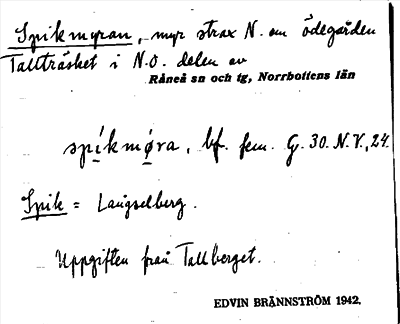 Spikmyran, myr strax N. om ödegården
Tallträsket i N.O. delen av
Råneå sn och tg, Norrbottens län
spíkmø̨ra, bf. fem. G. 30. N.V., 24.
Spik = Langselberg.
Uppgiften från Tallberget.
EDVIN BRÄNNSTRÖM 1942.